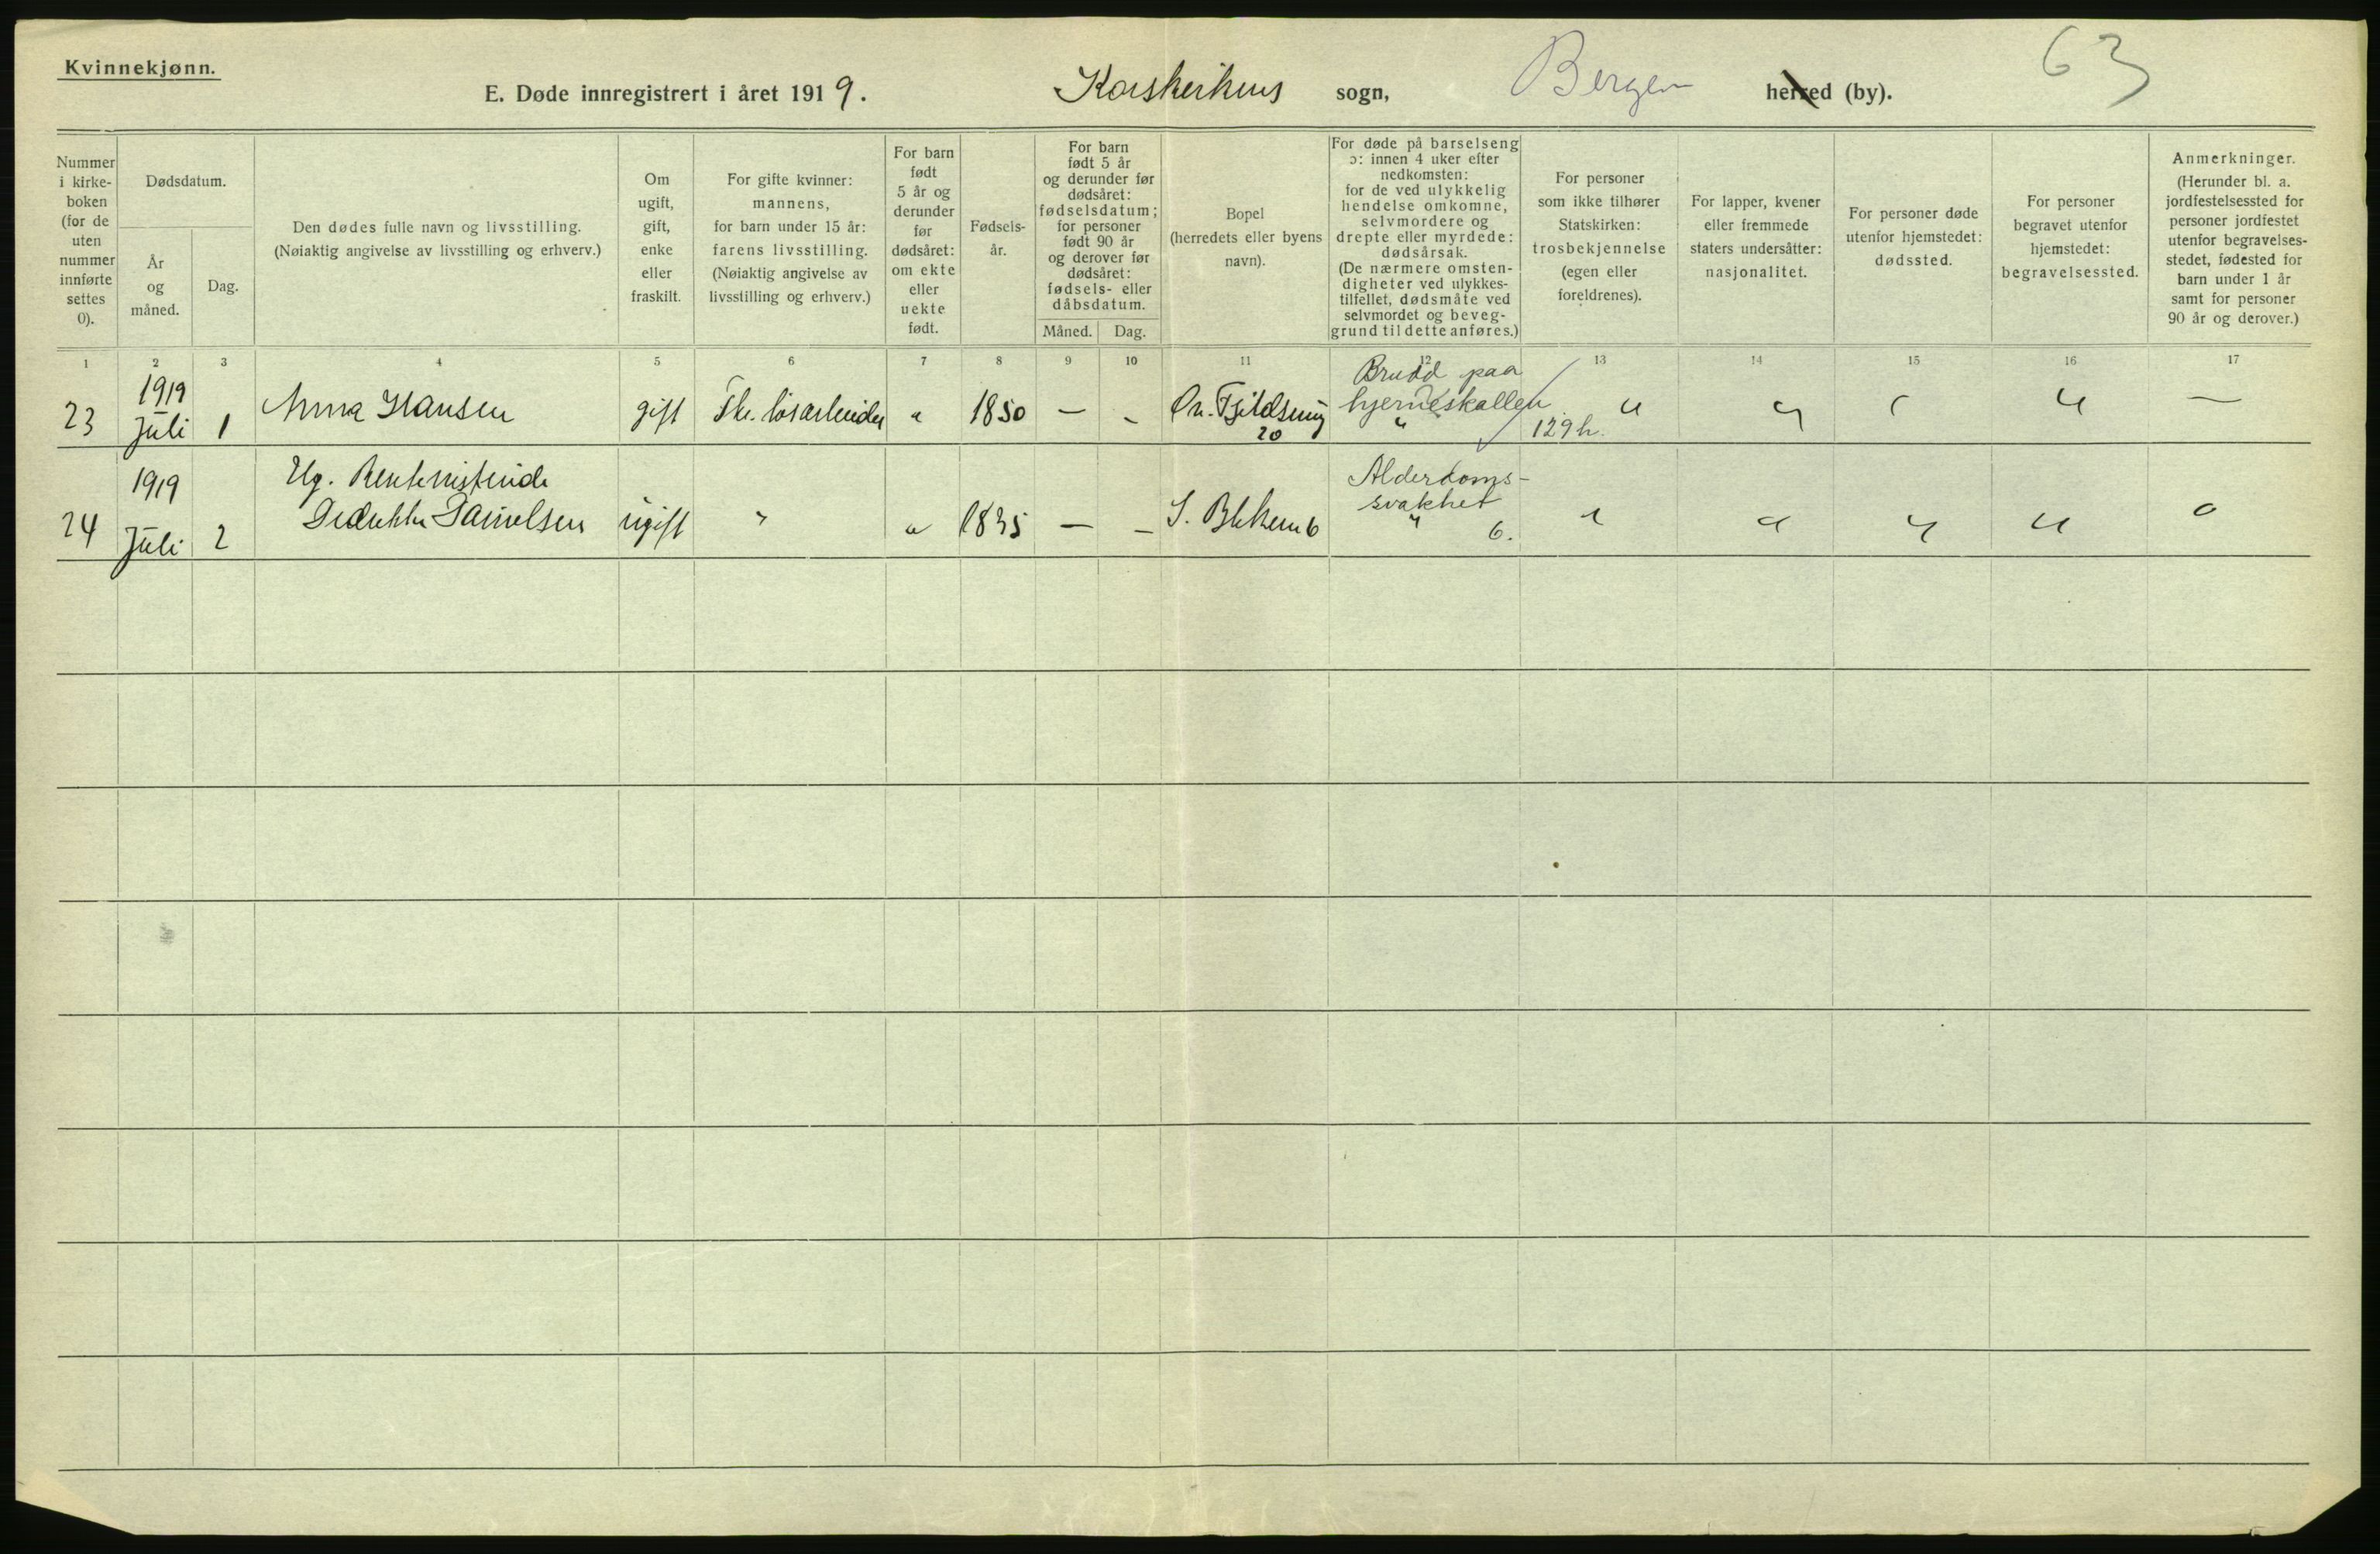 Kvinnekjønn.
E. Døde innregistrert i året 1919. Korskirkens sogn, Bergen herred (by).
63
Nummer i kirke- boken (for de uten nummer innførte settes 0).
Dødsdatum.
År og måned.
Dag.
Den dødes fulle navn og livsstilling.
(Nøiaktig angivelse av livsstilling og erhverv.)
Om ugift, gift, enke eller fraskilt.
For gifte kvinner: mannens, for barn under 15 år: farens livsstilling. (Nøiaktig angivelse av livsstilling og erhverv.)
For barn født 5 år og derunder før dødsåret: om ekte eller uekte født.
Fødsels- år.
For barn født 5 år og derunder før dødsåret: fødselsdatum; for personer født 90 år og derover før dødsåret: fødsels- eller dåbsdatum.
Måned. Dag.
Bopel (herredets eller byens navn).
For døde på barselseng ɔ: innen 4 uker efter nedkomsten: for de ved ulykkelig hendelse omkomne, selvmordere og drepte eller myrdede: dødsårsak. (De nærmere omsten- digheter ved ulykkes- tilfellet, dødsmåte ved selvmordet og beveg- grund til dette anføres.)
For personer som ikke tilhører Statskirken: trosbekjennelse (egen eller foreldrenes).
For lapper, kvener eller fremmede staters undersåtter: nasjonalitet.
For personer døde utenfor hjemstedet: dødssted.
For personer begravet utenfor hjemstedet: begravelsessted.
Anmerkninger. (Herunder bl. a. jordfestelsessted for personer jordfestet utenfor begravelses- stedet, fødested for barn under 1 år samt for personer 90 år og derover.)
1 2 3 4 5 6 7 8 9 10 11 12 13 14 15 16 17
1919 Brudd paa
23 Juli 1 Anna Hansen gift " 1850 — - hjerneskallen " " " " —
20 " 129 h.
1919 Ug. Alderdoms-
24 Juli 2 ugift " " 1835 — — 6 svakhet " " " " "
" 6.